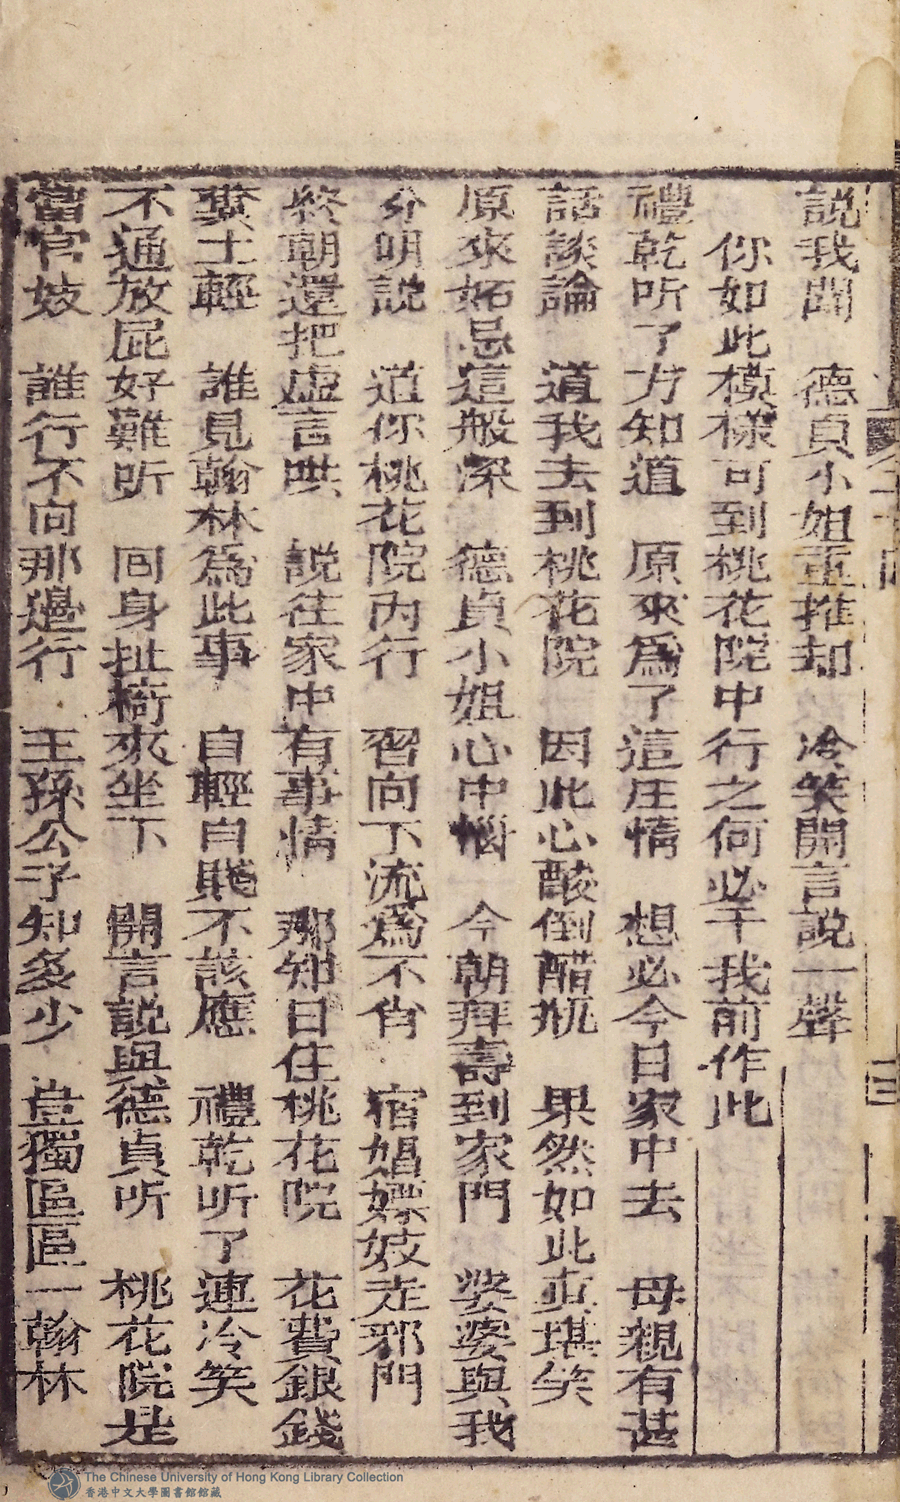 說我聞　德貞小姐重推却　冷笑開言說一聲
你如此模樣可到桃花院中行之何必干我前作此
禮乾听了方知道　原來爲了這庄情　想必今日家中去　母親有甚
話談論　道我去到桃花院　因此心酸倒醋瓶　果然如此真堪笑
原來妬忌這般深　德貞小姐心中惱　今朝拜壽到家門　婆婆與我
分明説　道你桃花院內行　習向下流爲不肖　宿娼嫖妓走邪門
終朝還把虛言哄　説往家中有事情　那知日住桃花院　花費銀錢
糞土輕　誰見翰林爲此事　自輕自賤不該應　禮乾听了連冷笑
不通放屁好難听　囘身扯椅來坐下　開言說與德貞听　桃花院是
當官妓　誰行不向那邊行　王孫公子知多少　豈獨區區一翰林
The Chinese University of Hong Kong Library Collection
香港中文大學圖書館館藏